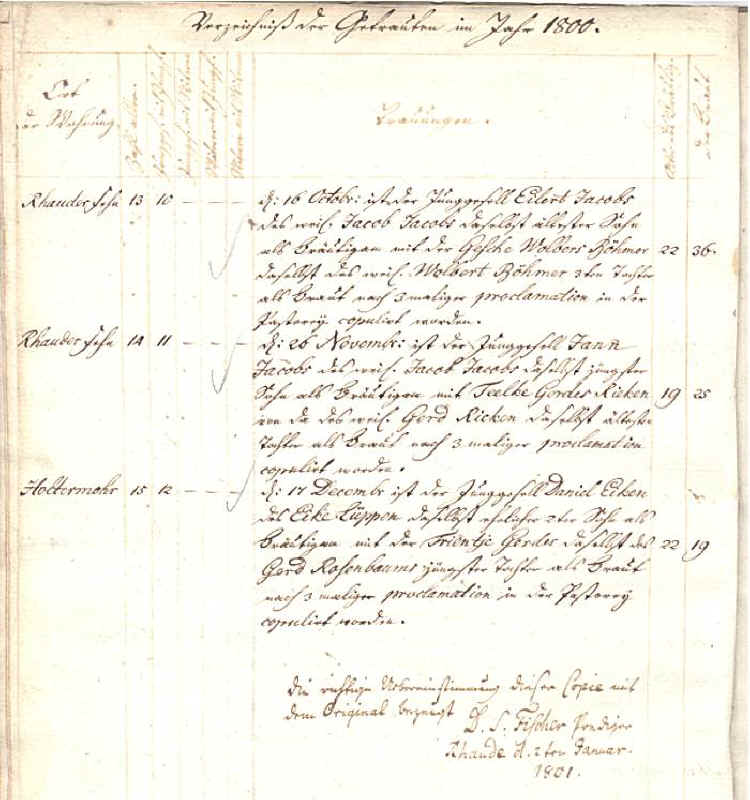 Verzeichniß der Getrauten im Jahr 1800.
Ort
der Wohnung.
Trauungen.
Alter des Bräutig.
der Braut
Rhauder Fehn 13 10 - - - d: 16 Octobr: ist der Junggesell Eilert Jacobs
des weil. Jacob Jacobs daselbst ältester Sohn
als Bräutigam mit der Gesche Wolbers Böhmer 22 36.
daselbst des weil. Wolbert Böhmer 3ten Tochter
als Braut nach 3maliger proclamation in der
Pastorey copulirt worden.
Rhauder Fehn 14 11 - - - d: 26 Novembr: ist der Junggesell Jann
Jacobs des weil. Jacob Jacobs daselbst jüngster
Sohn als Bräutigam mit Teelke Gerdes Ricken 19 25
von da des weil. Gerd Ricken daselbst älteste
Tochter als Braut nach 3 maliger proclamation
copulirt worden.
Holtermohr 15 12 - - - d: 17 Decembr ist der Junggesell Daniel Eiken
des Eike Lüppen daselbst ehelicher 2ter Sohn als
Bräutigam mit der Trientje Gerdes daselbst des 22 19
Gerd Rosenbaums jüngster Tochter als Braut
nach 3 maliger proclamation in der Pastorey
copulirt worden.
die richtige Uebereinstimmung dieser Copie mit
dem Original bezeugt D. S. Fischer Prediger
Rhaude d. 2ten Januar.
1801.